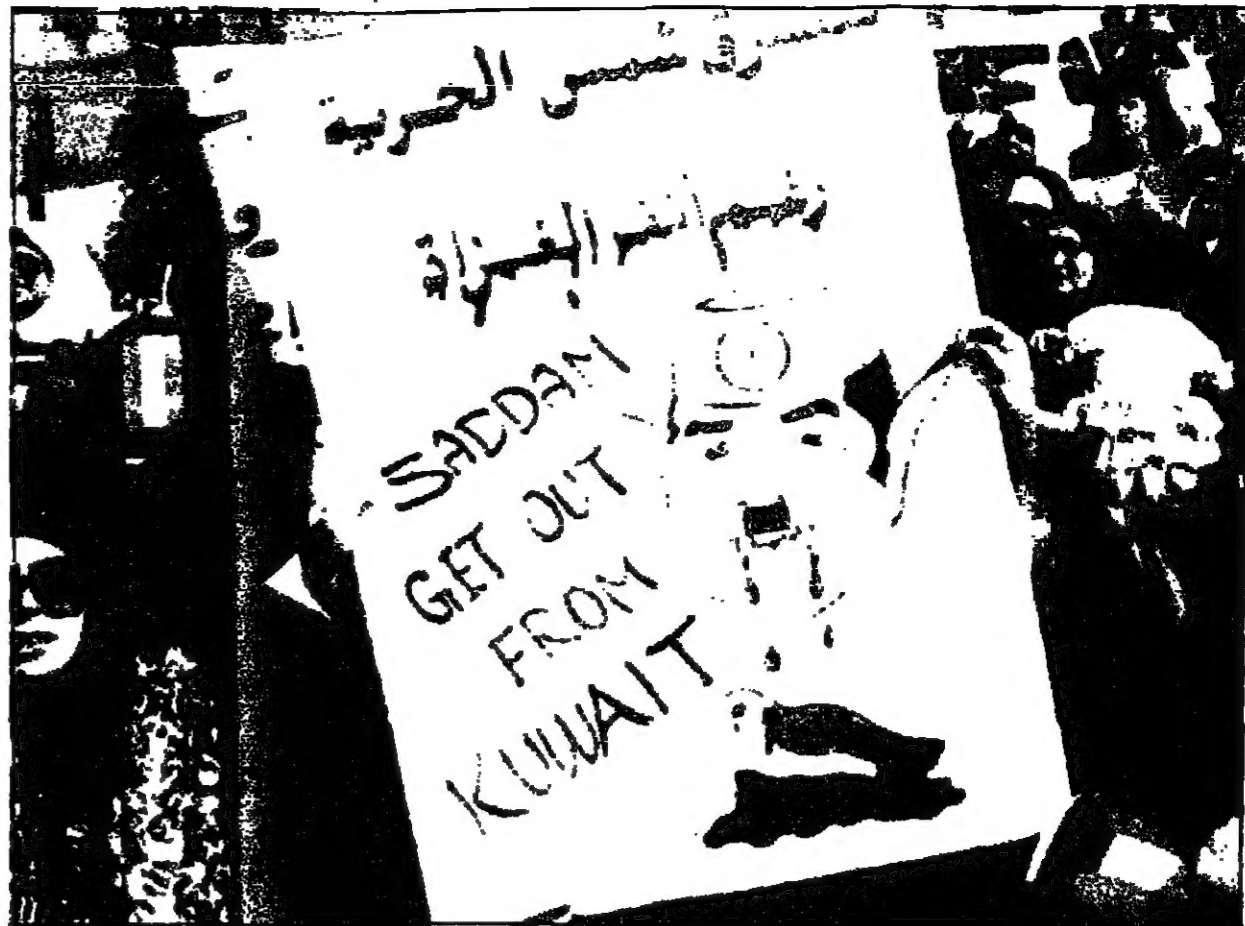 شمس الحرية
رغم انف الغزاة
SADDAM
GET OUT
FROM
KUWAIT